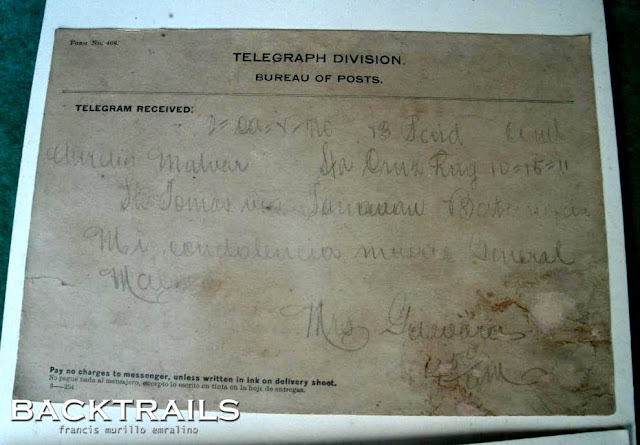 Form No. 406.
TELEGRAPH DIVISION.
BUREAU OF POSTS.
TELEGRAM RECEIVED:
13 Paid
Malvar Sta Cruz Lag 10=15=11
Sto Tomas via Tanauan Batangas
Mi condolencia muerte General
Mrs Guevara
Pay no charges to messenger, unless written in ink on delivery sheet.
No pague nada al mensajero, excepto lo escrito en tinta en la hoja de entregas.
3—254
BACKTRAILS
francis murillo emralino